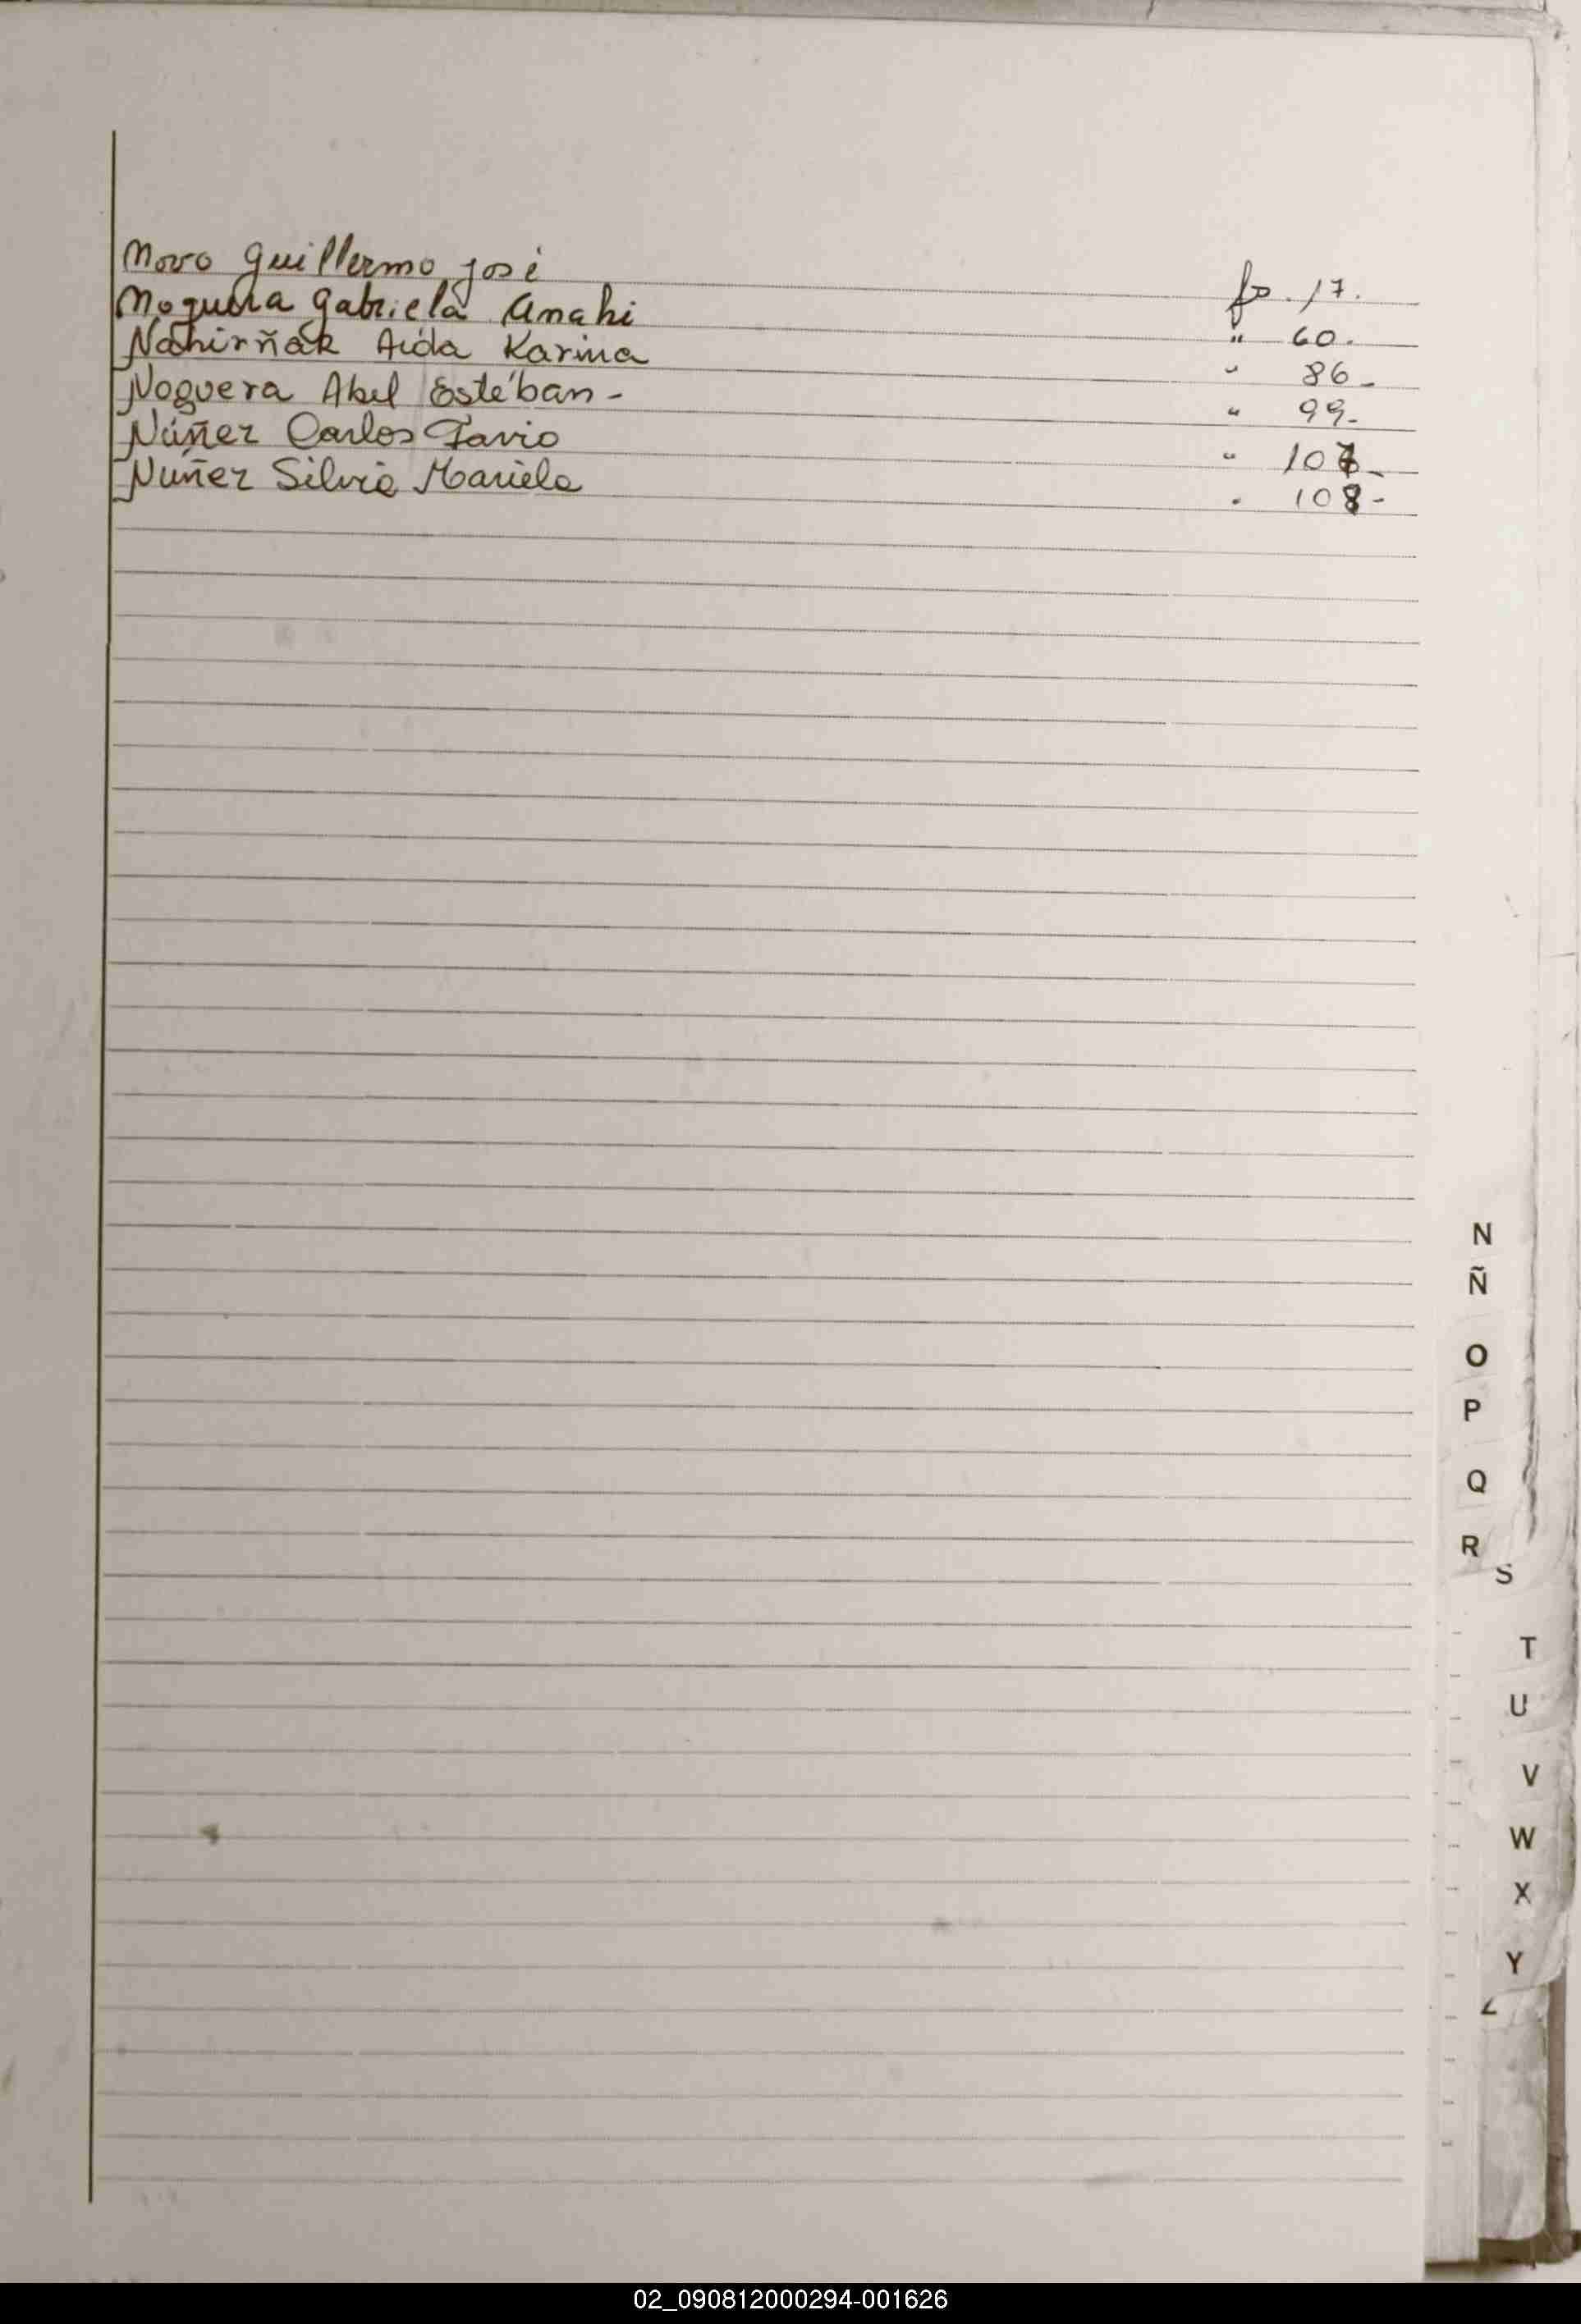 Novo Guillermo José fo. 17.
Noguera Gabriela Anahi " 60.
Nahirñak Aida Karina " 86-
Noguera Abel Estéban - " 99-
Núñez Carlos Favio " 107-
Nuñez Silvia Mariela " 108-
N
Ñ
O
P
Q
R
S
T
U
V
W
X
Y
Z
02_090812000294-001626